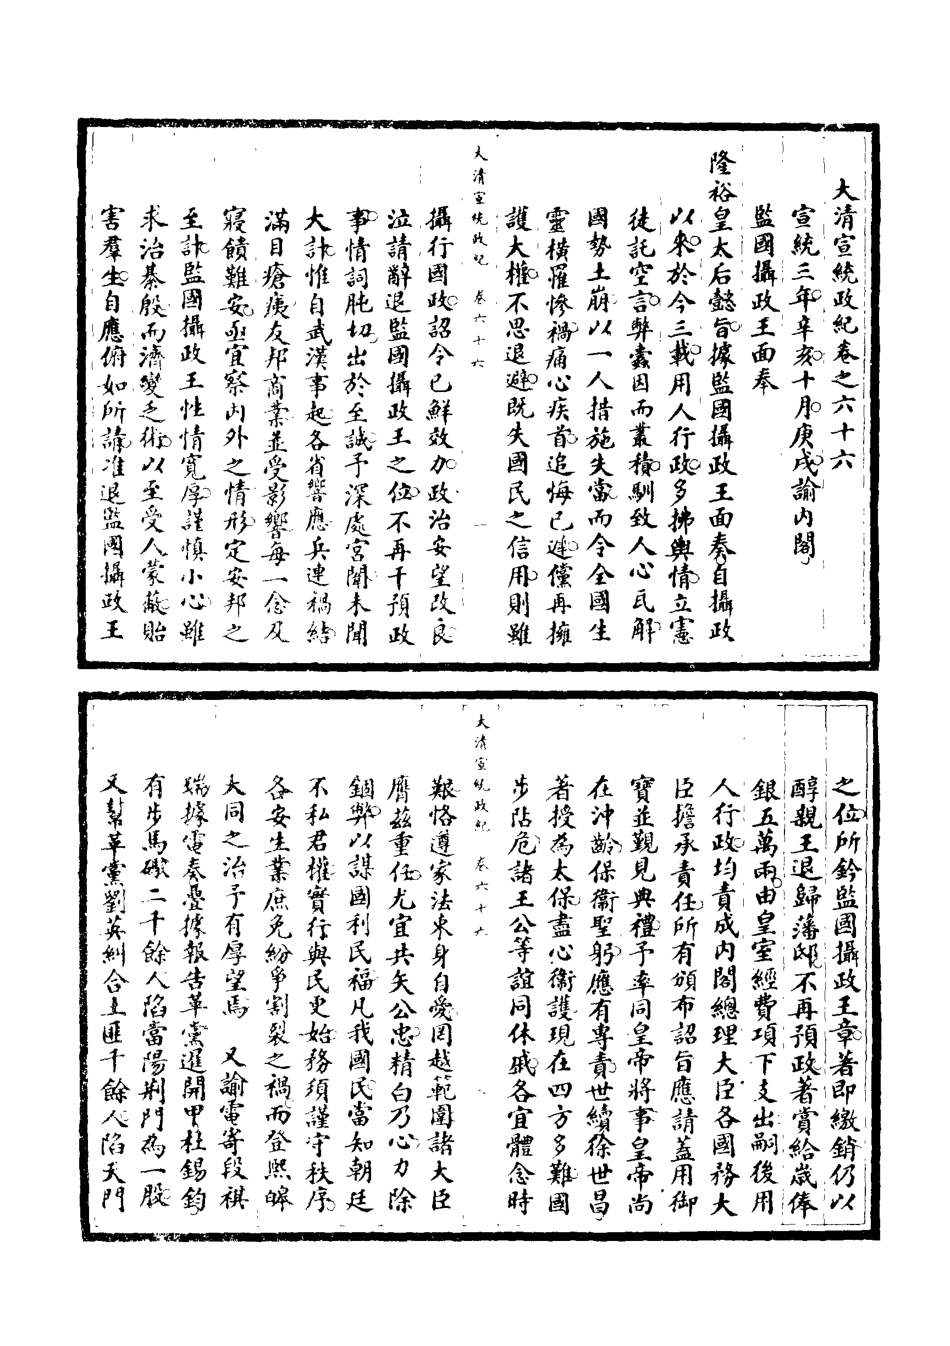 大清宣統政紀卷之六十六
宣統三年辛亥十月庚戌諭內閣
監國攝政王面奉
隆裕皇太后懿旨據監國攝政王面奏自攝政
以來於今三載用人行政多拂輿情立憲
徒託空言弊蠹因而叢積馴致人心瓦解
國勢土崩以一人措施失當而令全國生
靈橫罹慘禍痛心疾首追悔已遲儻再擁
護大權不思退避既失國民之信用則雖
大清宣統政紀 卷六十六 一
攝行國政詔令已鮮效力政治安望改良
泣請辭退監國攝政王之位不再干預政
事情詞肫切出於至誠予深處宮闈未聞
大計惟自武漢事起各省響應兵連禍結
滿目瘡痍友邦商業並受影響每一念及
寢饋難安亟宜察內外之情形定安邦之
至計監國攝政王性情寬厚謹慎小心雖
求治綦殷而濟變乏術以至受人蒙蔽貽
害羣生自應俯如所請准退監國攝政王
之位所鈐監國攝政王章著即繳銷仍以
醇親王退歸藩邸不再預政著賞給歲俸
銀五萬兩由皇室經費項下支出嗣後用
人行政均責成內閣總理大臣各國務大
臣擔承責任所有頒布詔旨應請蓋用御
寶並覲見典禮予率同皇帝將事皇帝尚
在沖齡保衞聖躬應有專責世續徐世昌
著授為太保盡心衞護現在四方多難國
步阽危諸王公等誼同休戚各宜體念時
大清宣統政紀 卷六十六
艱恪遵家法束身自愛罔越範圍諸大臣
膺茲重任尤宜共矢公忠精白乃心力除
錮弊以謀國利民福凡我國民當知朝廷
不私君權實行與民更始務須謹守秩序
各安生業庶免紛爭割裂之禍而登熙皞
大同之治予有厚望焉 又諭電寄段祺
瑞據電奏疊據報告革黨暹開甲杜錫鈞
有步馬礮二千餘人陷當陽荆門為一股
又幫革黨劉英糾合土匪千餘人陷天門